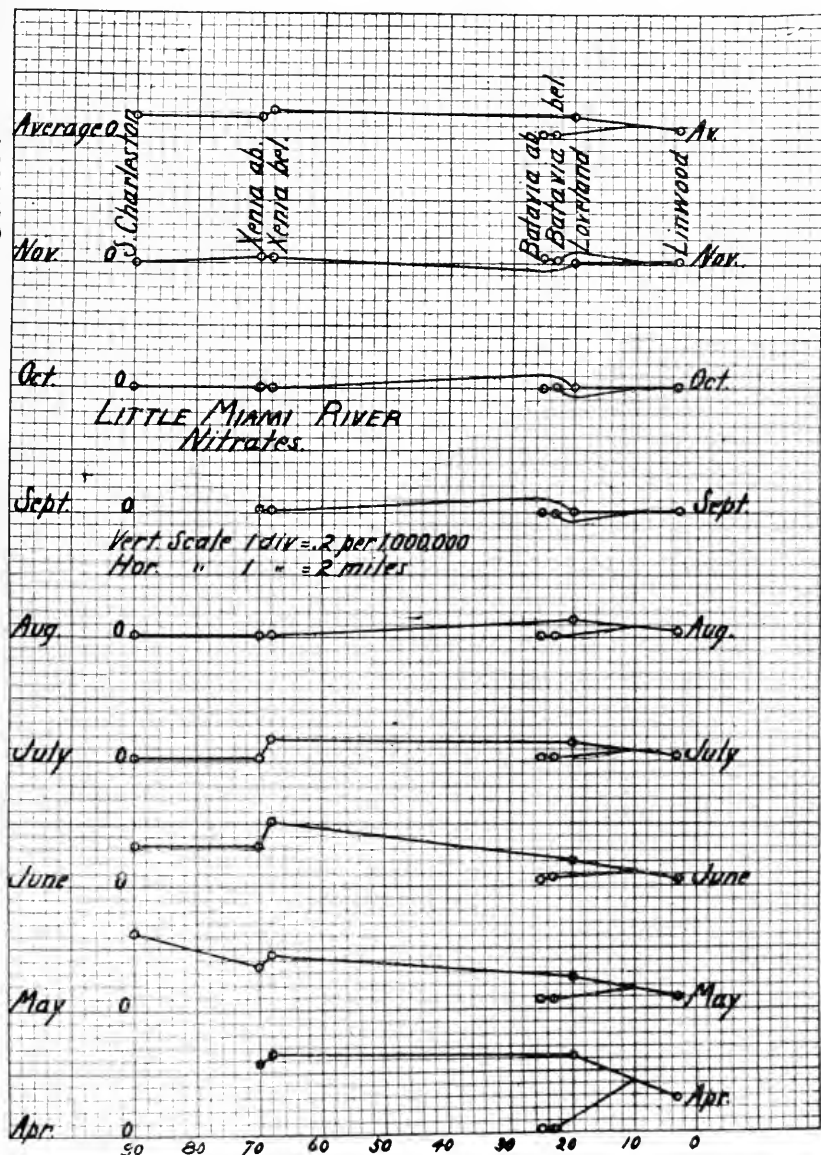 Average 0
Av.
S. Charleston
Xenia ab.
Xenia bel.
Batavia ab.
Batavia bel.
Loveland
Linwood
Nov. 0
Nov.
Oct. 0
Oct.
LITTLE MIAMI RIVER
Nitrates.
Sept. 0
Sept.
Vert. Scale 1 div = .2 per 1,000,000
Hor. " 1 " = 2 miles
Aug. 0
Aug.
July 0
July
June 0
June
May 0
May
Apr. 0
Apr.
90 80 70 60 50 40 30 20 10 0